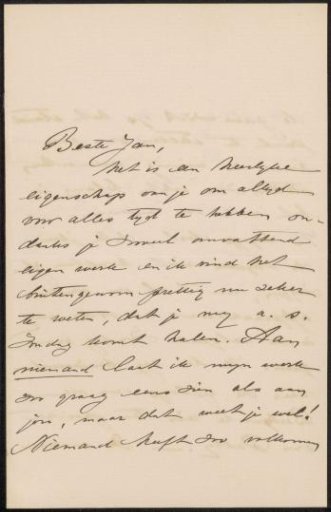 Beste Jan,
Het is een heerlyke
eigenschap van je om altyd
voor alles tyd te hebben on-
danks je zooveel omvattend
eigen werk en ik vind het
buitengewoon prettig nu zeker
te weten, dat je my a. s.
Zondag komt halen. Aan
niemand laat ik myn werk
zoo graag eens zien als aan
jou, maar dat weet je wel!
Niemand heeft zoo volkomen